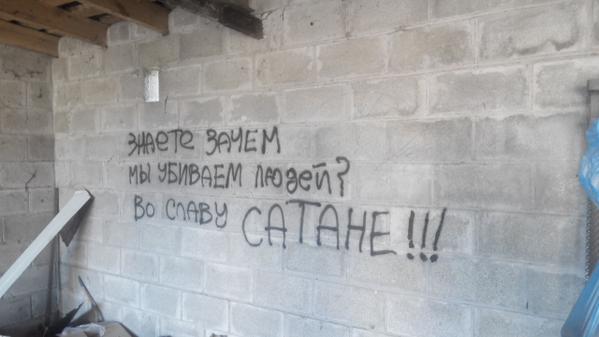 ЗНАЕТЕ ЗАЧЕМ
МЫ УБИВАЕМ ЛЮДЕЙ?
ВО СЛАВУ САТАНЕ!!!